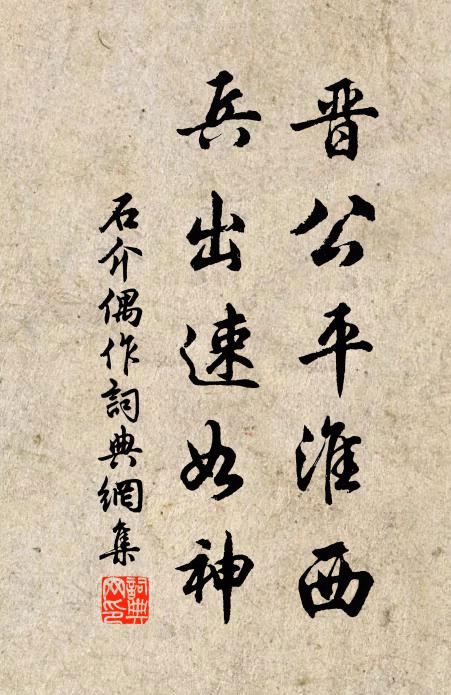 晋公平淮西
兵出速如神
石介偶作詞典網集
詞典網印